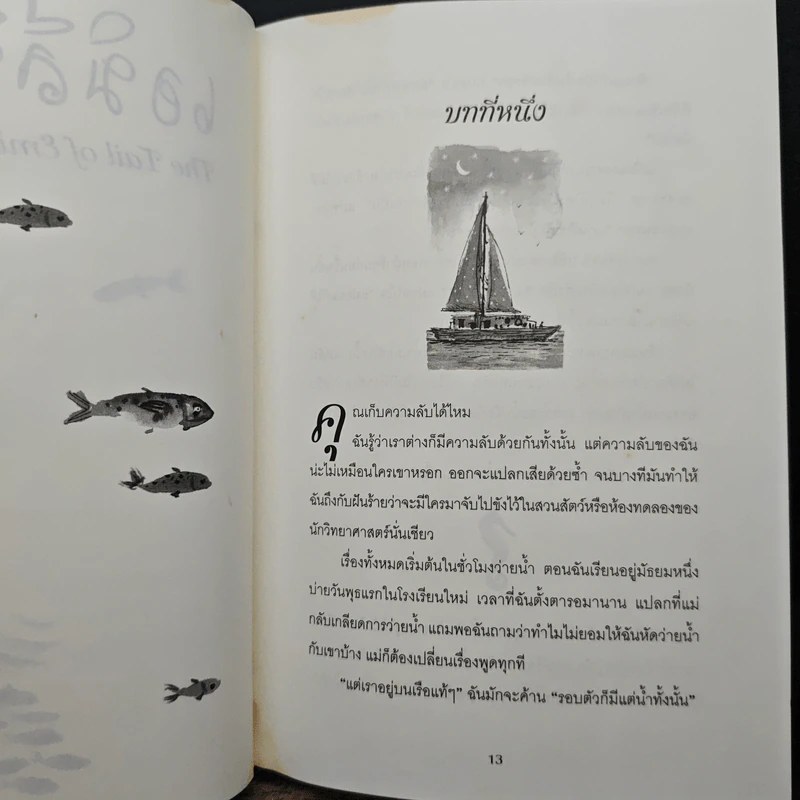 เอมิลี่
The Tail of Emi
บทที่หนึ่ง
คุณเก็บความลับได้ไหม
ฉันรู้ว่าเราต่างก็มีความลับด้วยกันทั้งนั้น แต่ความลับของฉัน
น่ะไม่เหมือนใครเขาหรอก ออกจะแปลกเสียด้วยซ้ำ จนบางทีมันทำให้
ฉันถึงกับฝันร้ายว่าจะมีใครมาจับไปขังไว้ในสวนสัตว์หรือห้องทดลองของ
นักวิทยาศาสตร์นั่นเชียว
เรื่องทั้งหมดเริ่มต้นในชั่วโมงว่ายน้ำ ตอนฉันเรียนอยู่มัธยมหนึ่ง
บ่ายวันพุธแรกในโรงเรียนใหม่ เวลาที่ฉันตั้งตารอมานาน แปลกที่แม่
กลับเกลียดการว่ายน้ำ แถมพอฉันถามว่าทำไมไม่ยอมให้ฉันหัดว่ายน้ำ
กับเขาบ้าง แม่ก็ต้องเปลี่ยนเรื่องพูดทุกที
“แต่เราอยู่บนเรือแท้ๆ” ฉันมักจะค้าน “รอบตัวก็มีแต่น้ำทั้งนั้น”
13